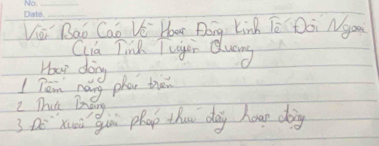 No.
Date
Viết Báo Cáo Về Hoạt Động Kinh Tế Đối Ngoại
Của Tỉnh Tuyên Quang
Hoạt động
1 Tiềm năng phát triển
2 Thực trạng
3 Đề xuất giải pháp thúc đẩy hoạt động